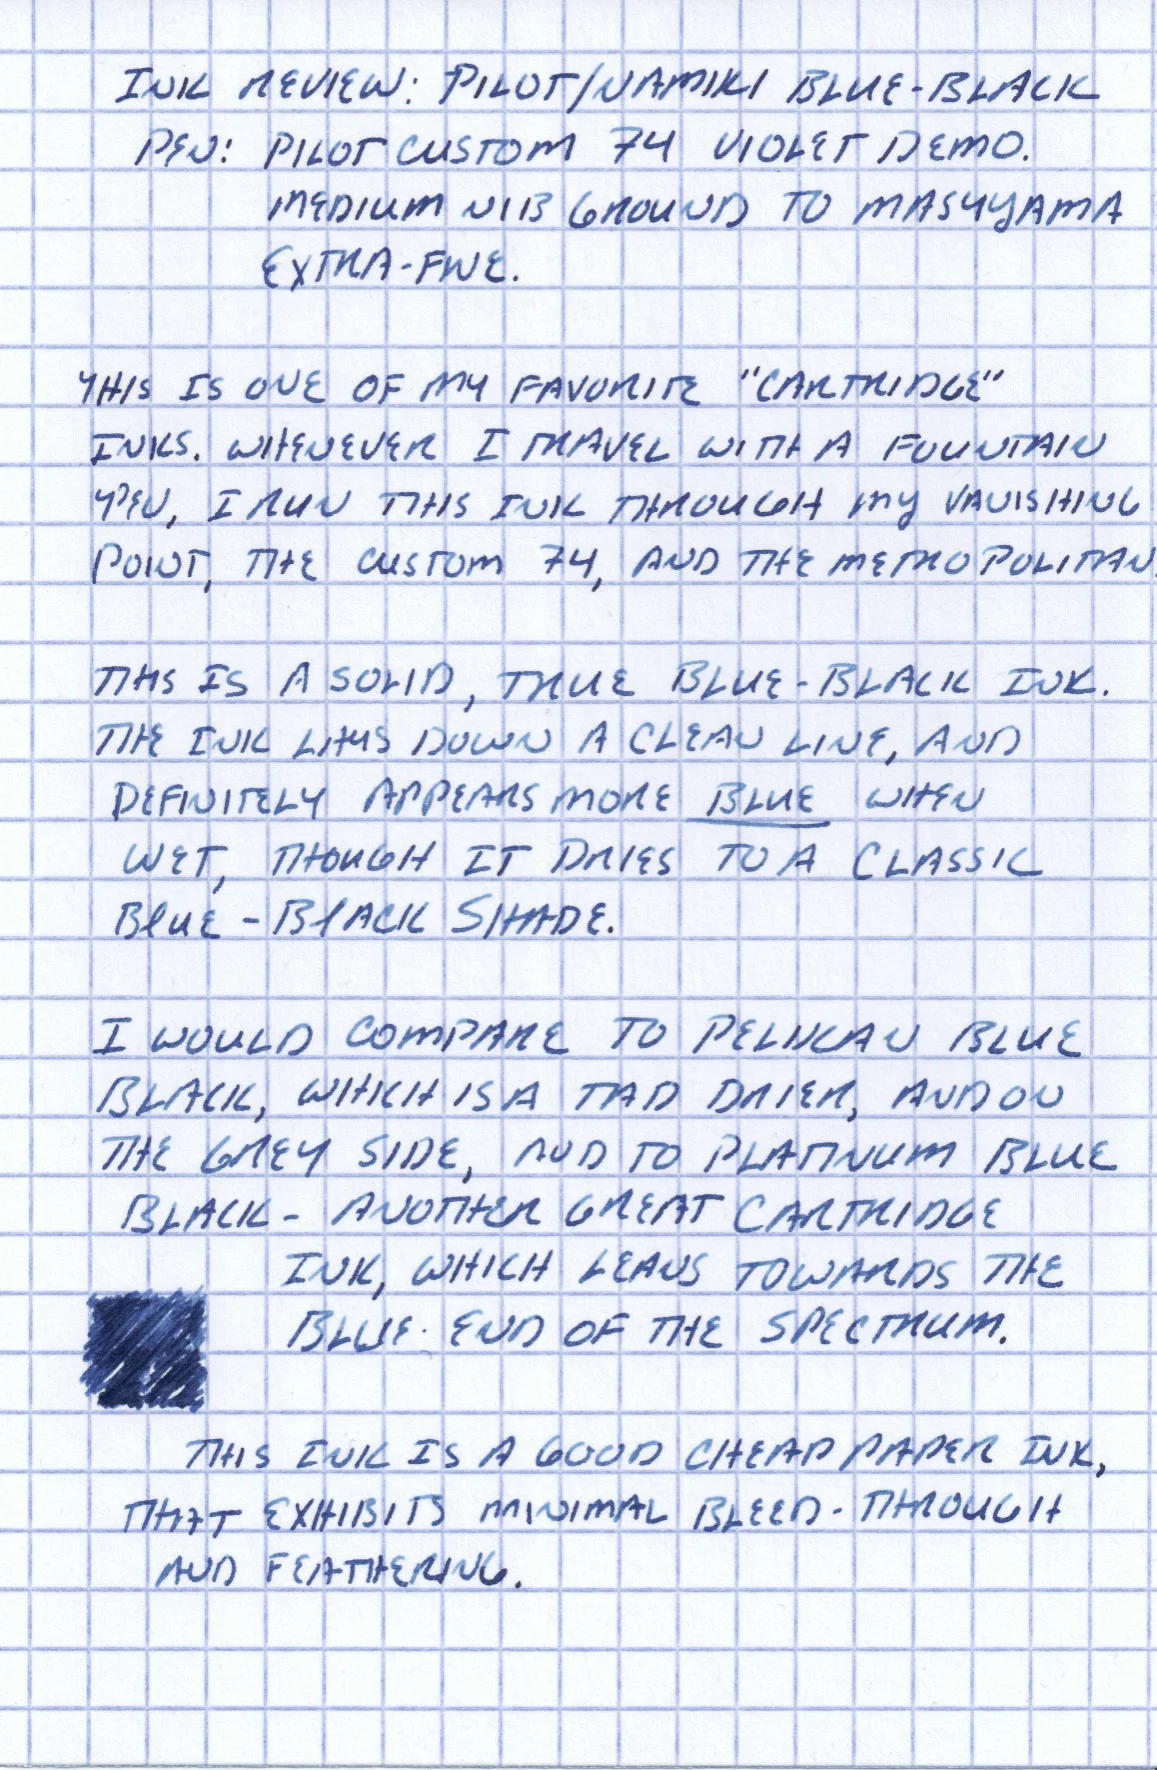 INK REVIEW: PILOT/NAMIKI BLUE-BLACK
PEN: PILOT CUSTOM 74 VIOLET DEMO.
MEDIUM NIB GROUND TO MASUYAMA
EXTRA-FINE.
THIS IS ONE OF MY FAVORITE "CARTRIDGE"
INKS. WHENEVER I TRAVEL WITH A FOUNTAIN
PEN, I RUN THIS INK THROUGH MY VANISHING
POINT, THE CUSTOM 74, AND THE METROPOLITAN.
THIS IS A SOLID, TRUE BLUE-BLACK INK.
THE INK LAYS DOWN A CLEAN LINE, AND
DEFINITELY APPEARS MORE BLUE WHEN
WET, THOUGH IT DRIES TO A CLASSIC
BlUE-BlACK SHADE.
I WOULD COMPARE TO PELIKAN BLUE
BLACK, WHICH IS A TAD DRIER, AND ON
THE GREY SIDE, AND TO PLATINUM BLUE
BLACK - ANOTHER GREAT CARTRIDGE
INK, WHICH LEANS TOWARDS THE
BLUE END OF THE SPECTRUM.
THIS INK IS A GOOD CHEAP PAPER INK,
THAT EXHIBITS MINIMAL BLEED-THROUGH
AND FEATHERING.